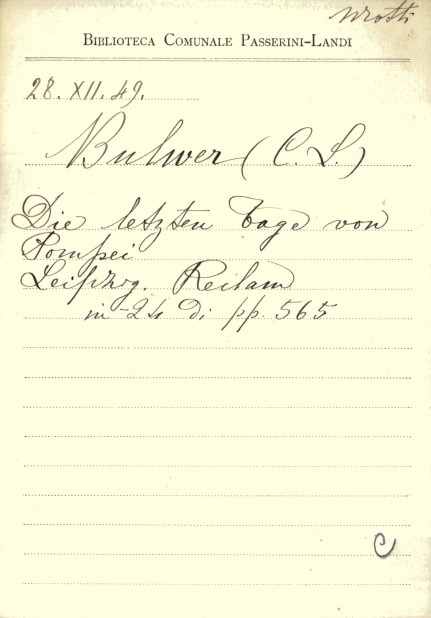 BIBLIOTECA COMUNALE PASSERINI-LANDI
28. XII. 49.
Bulwer (C. L.)
Die letzten Tage von
Pompei
Leipzig. Reclam
in-24 di pp. 565
C